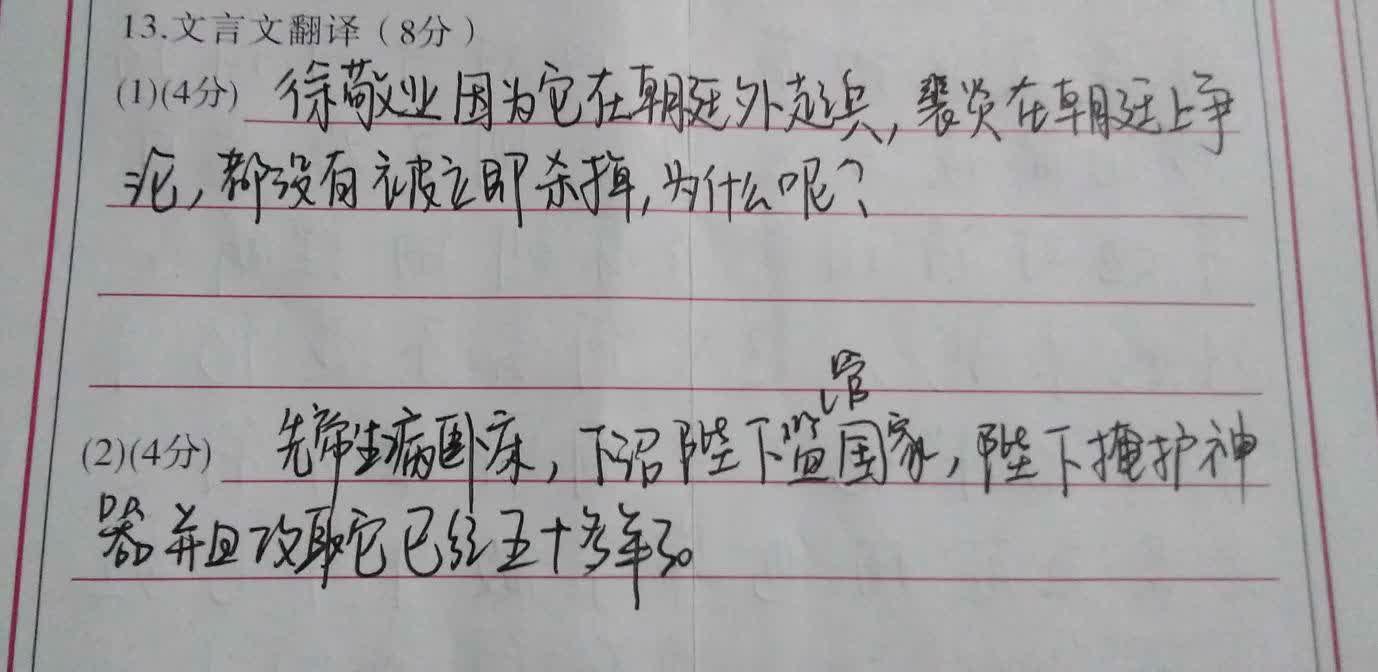 13.文言文翻译（8分）
(1)(4分) 徐敬业因为它在朝廷外起兵,裴炎在朝廷上争
论,都没有被立即杀掉,为什么呢?
(2)(4分) 先帝生病卧床,下诏陛下监管国家,陛下掩护神
器并且攻取它已经五十多年了。